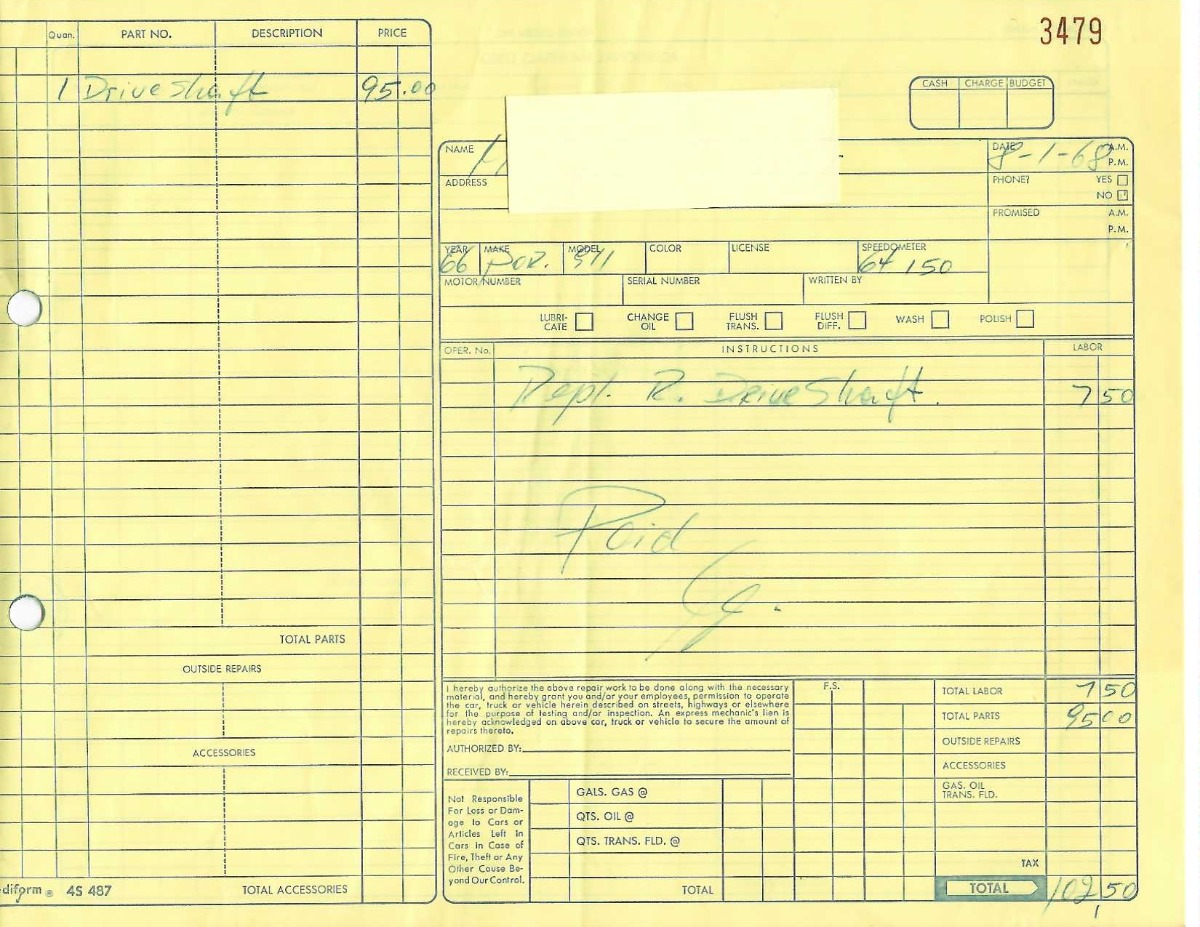 3479
Quan. PART NO. DESCRIPTION PRICE
1 Driveshaft 95.00
TOTAL PARTS
OUTSIDE REPAIRS
ACCESSORIES
diform ® 4S 487 TOTAL ACCESSORIES
CASH CHARGE BUDGET
NAME
DATE 8-1-68 A.M.
P.M.
ADDRESS
PHONE? YES
NO
PROMISED A.M.
P.M.
YEAR MAKE MODEL COLOR LICENSE SPEEDOMETER
66 Por. 911 64150
MOTOR NUMBER SERIAL NUMBER WRITTEN BY
LUBRI-
CATE
CHANGE
OIL
FLUSH
TRANS.
FLUSH
DIFF.
WASH
POLISH
OPER. No. INSTRUCTIONS LABOR
Repl. R. Driveshaft. 7 50
Paid
I hereby authorize the above repair work to be done along with the necessary
material, and hereby grant you and/or your employees, permission to operate
the car, truck or vehicle herein described on streets, highways or elsewhere
for the purpose of testing and/or inspection. An express mechanic's lien is
hereby acknowledged on above car, truck or vehicle to secure the amount of
repairs thereto.
AUTHORIZED BY:
RECEIVED BY:
Not Responsible
For Loss or Dam-
age to Cars or
Articles Left in
Cars in Case of
Fire, Theft or Any
Other Cause Be-
yond Our Control.
GALS. GAS @
QTS. OIL @
QTS. TRANS. FLD. @
TOTAL
F.S.
TOTAL LABOR 7 50
TOTAL PARTS 95 00
OUTSIDE REPAIRS
ACCESSORIES
GAS. OIL
TRANS. FLD.
TAX
TOTAL 102 50